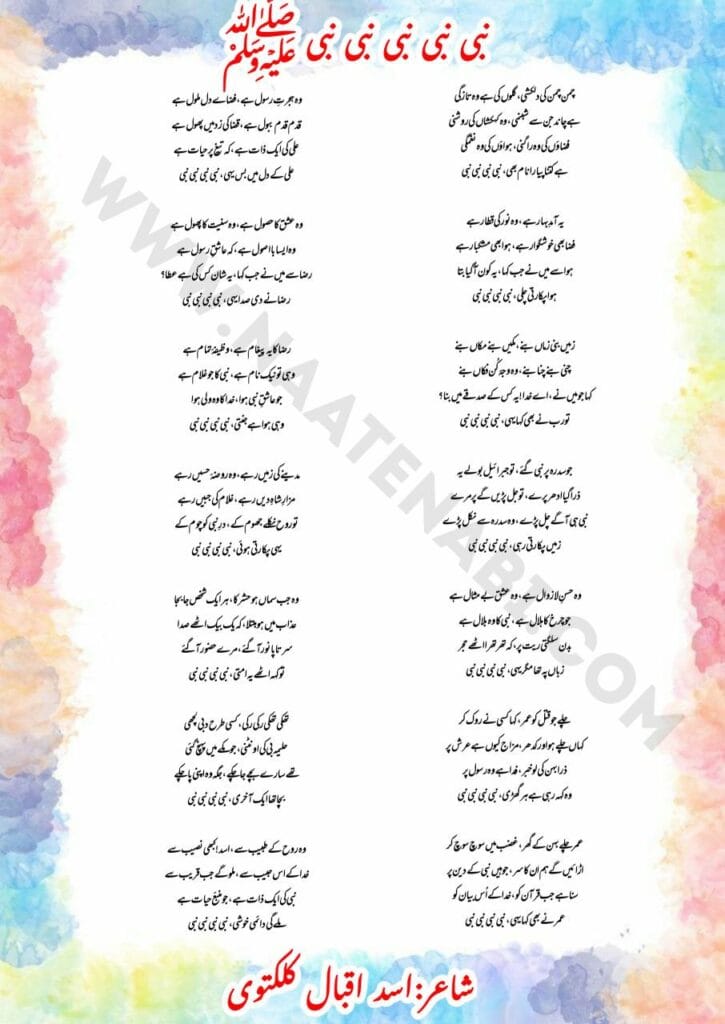 نبی نبی نبی نبی نبی ﷺ
چمن چمن کی دلکشی، گلوں کی ہے وہ تازگی
ہے چاند جن سے شبنمی، وہ کہکشاں کی روشنی
فضاؤں کی وہ راگنی، ہواؤں کی وہ نغمگی
ہے کتنا پیارا نام بھی، نبی نبی نبی نبی
یہ آمدِ بہار ہے، وہ نور کی قطار ہے
فضا بھی خوشگوار ہے، ہوا بھی مشکبار ہے
ہوا سے میں نے جب کہا، یہ کون آگیا بتا
ہوا پکارتی چلی، نبی نبی نبی نبی
زمیں بنی زماں بنے، مکیں بنے مکاں بنے
چنی بنے چنا بنے، وہ وجہِ کُن فکاں بنے
کہا جو میں نے، اے خدا! یہ کس کے صدقے میں بنا؟
تو رب نے بھی کہا یہی، نبی نبی نبی نبی
جو سدرہ پر نبی گئے، تو جبرائیل بولے یہ
ذرا گیا ادھر پرے، تو جل پڑیں گے پر مرے
نبی ہی آگے چل پڑے، وہ سدرہ سے نکل پڑے
زمیں پکارتی رہی، نبی نبی نبی نبی
وہ حسنِ لازوال ہے، وہ عشقِ بے مثال ہے
جو چرخ کا ہلال ہے، نبی کا وہ بلال ہے
بدن سلگتی ریت پر، کہ تھر تھرا اٹھے حجر
زباں پہ تھا مگر یہی، نبی نبی نبی نبی
چلے جو قتل کو عمر، کہا کسی نے روک کر
کہاں چلے ہو اور کدھر، مزاج کیوں ہے عرش پر
ذرا بہن کی لو خبر، فدا ہے وہ رسول پر
وہ کہہ رہی ہے ہر گھڑی، نبی نبی نبی نبی
عمر چلے بہن کے گھر، غضب میں سوچ سوچ کر
اڑائیں گے ہم ان کا سر، جو ہیں نبی کے دین پر
سنا ہے جب قرآن کو، خدا کے اُس بیان کو
عمر نے بھی کہا یہی، نبی نبی نبی نبی
وہ ہجرتِ رسول ہے، فضاے دل ملول ہے
قدم قدم ببول ہے، قضا کی زد میں پھول ہے
علی کی ایک ذات ہے، کہ تیغ پر حیات ہے
علی کے دل میں بس یہی، نبی نبی نبی نبی
وہ عشق کا حصول ہے، وہ سنیت کا پھول ہے
وہ ایسا با اصول ہے، کہ عاشقِ رسول ہے
رضا سے میں نے جب کہا، یہ شان کس کی ہے عطا؟
رضا نے دی صدا یہی، نبی نبی نبی نبی
رضا کا یہ پیغام ہے، وظیفۂ تمام ہے
وہی تو نیک نام ہے، نبی کا جو غلام ہے
جو عاشقِ نبی ہوا، خدا کا وہ ولی ہوا
وہی ہوا ہے جنتی، نبی نبی نبی نبی
مدینے کی زمیں رہے، وہ روضۂ حسیں رہے
مزارِ شاہِ دیں رہے، غلام کی جبیں رہے
تو روح نکلے جھوم کے، درِ نبی کو چوم کے
یہی پکارتی ہوئی، نبی نبی نبی نبی
وہ جب سماں ہو حشر کا، ہر ایک شخص جا بجا
عذاب میں ہو مبتلا، کہ یک بیک اٹھے صدا
سر تا پا نور آگئے، مرے حضور آگئے
تو کہہ اٹھے یہ امتی، نبی نبی نبی نبی
تھکی تھکی رکی رکی، کسی طرح دبی لچھی
حلیمہ بی کی اونٹنی، جو مکے میں پہنچ گئی
تھے سارے بچے جا چکے، جگہ وہ اپنی پا چکے
بچا تھا ایک آخری، نبی نبی نبی نبی
وہ روح کے طبیب سے، اسد! کبھی نصیب سے
خدا کے اس حبیب سے، ملو گے جب قریب سے
نبی کی ایک ذات ہے، جو منبعِ حیات ہے
ملے گی دائمی خوشی، نبی نبی نبی نبی
شاعر: اسد اقبال کلکتوی
WWW.NAATENABI.COM